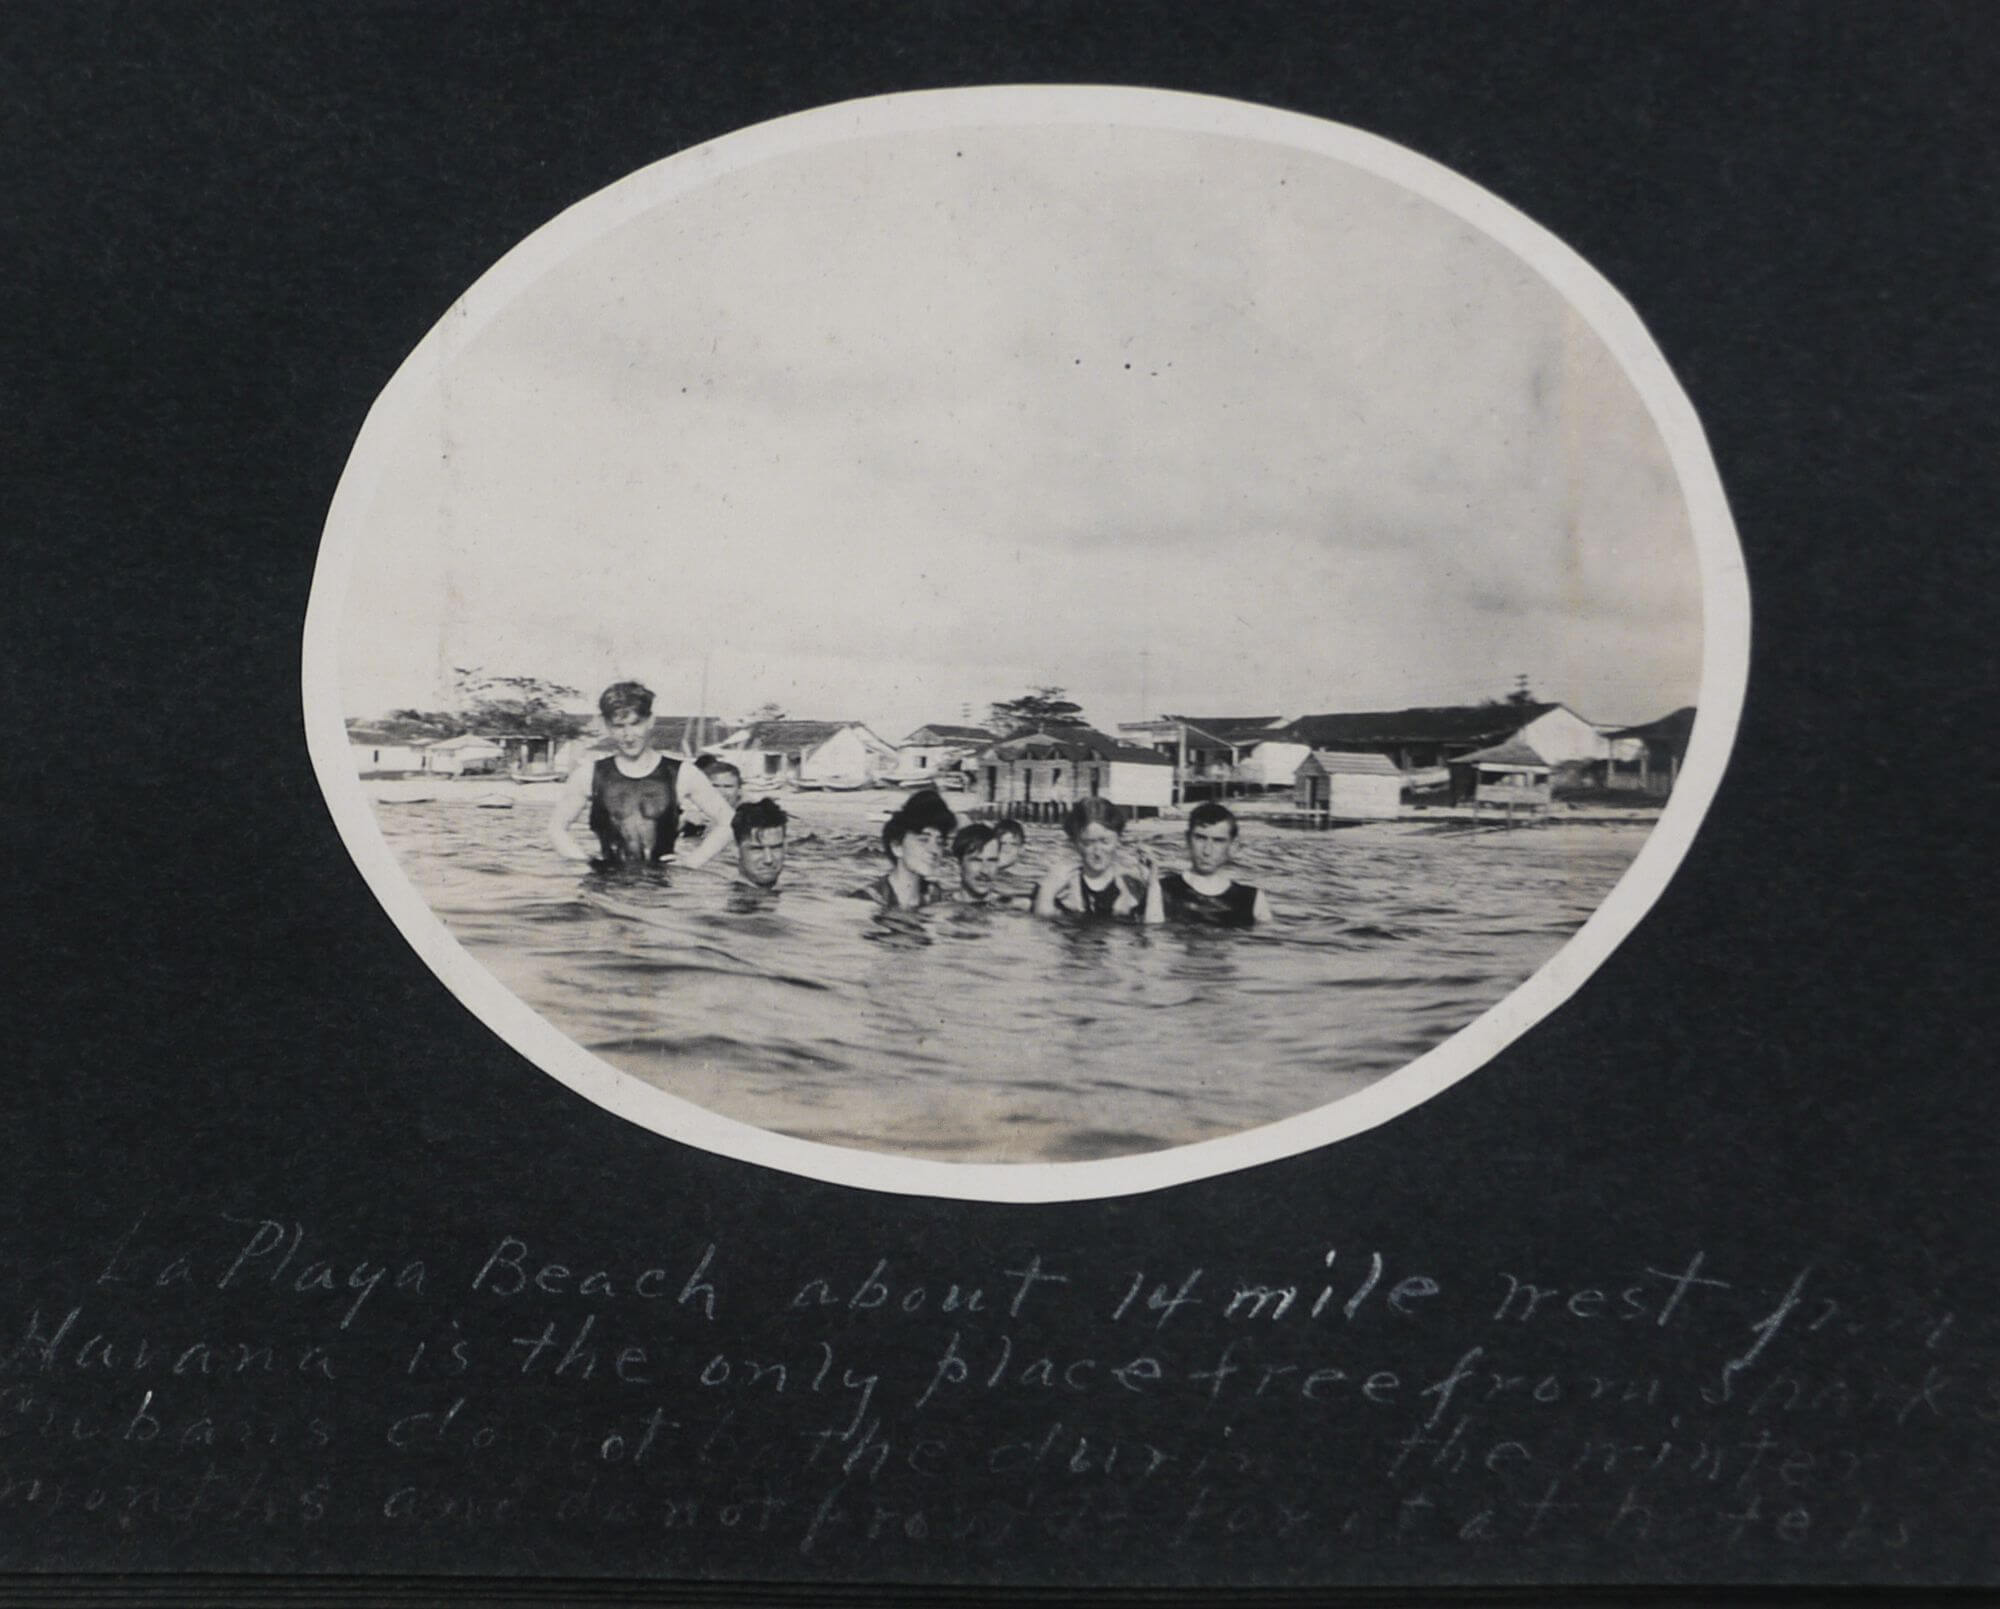 La Playa Beach about 14 mile west from
Havana is the only place free from Sharks
Cubans do not bathe during the winter
months and do not provide for it at hotels